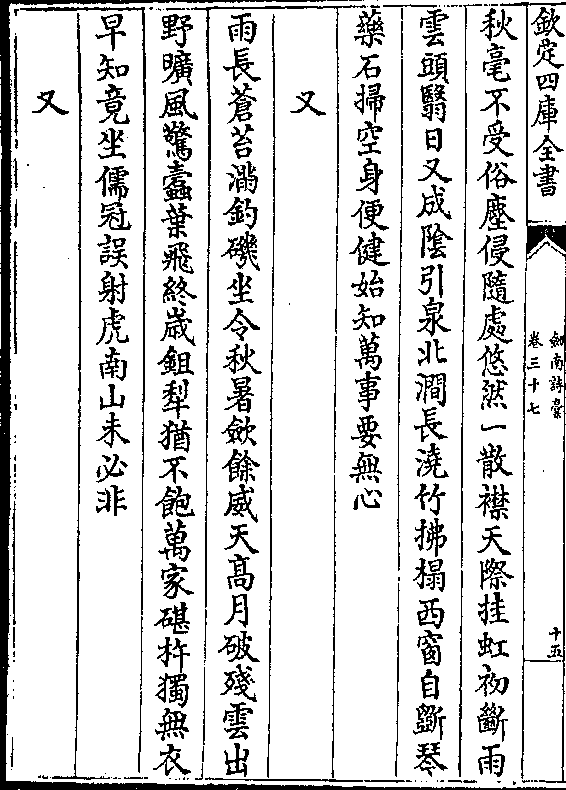 欽定四庫全書
劒南詩稾
卷三十七
十五
秋毫不受俗塵侵隨處悠然一散襟天際挂虹初斷雨
雲頭翳日又成隂引泉北澗長澆竹拂榻西窗自斵琴
藥石掃空身便健始知萬事要無心
又
雨長蒼苔漪釣磯坐令秋暑斂餘威天髙月破殘雲出
野曠風驚蠧葉飛終歳鉏犁猶不飽萬家碪杵獨無衣
早知竟坐儒冠誤射虎南山未必非
又